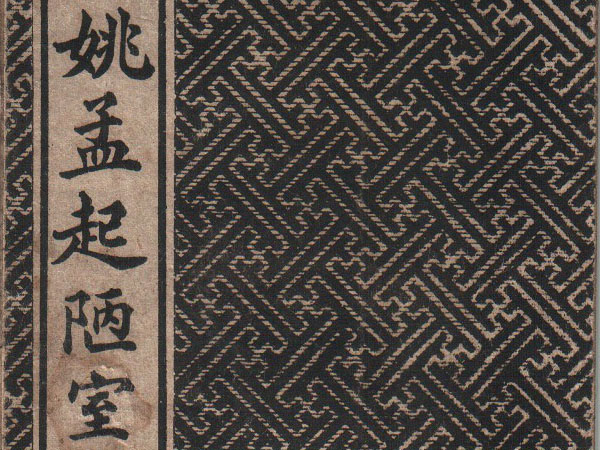 姚孟起陋室